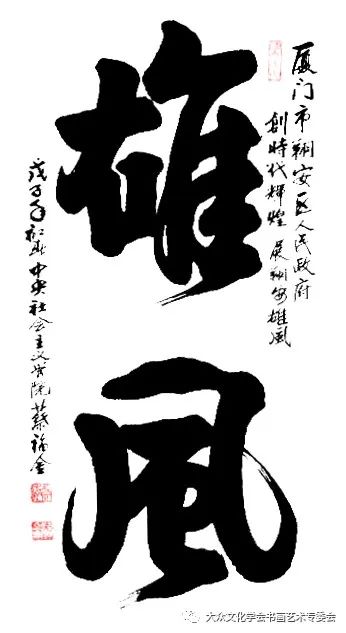 厦门市翔安区人民政府
創時代輝煌 展翔安雄風
雄風
戊子年初 中央社会主义学院 蔡福金
大众文化学会书画艺术专委会